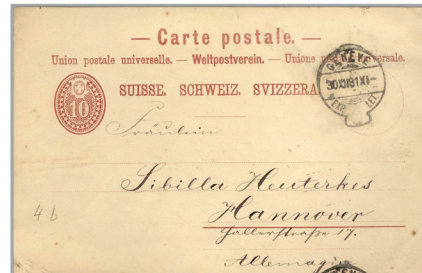 — Carte postale. —
Union postale universelle. — Weltpostverein. — Unione postale universale.
SUISSE. SCHWEIZ. SVIZZERA.
10
GENÈVE
30 XII 81 XI–
EXP. LET.
Fräulein
Sibilla Heuterkes
Hannover
Hallerstraße 17.
Allemagne
4 b